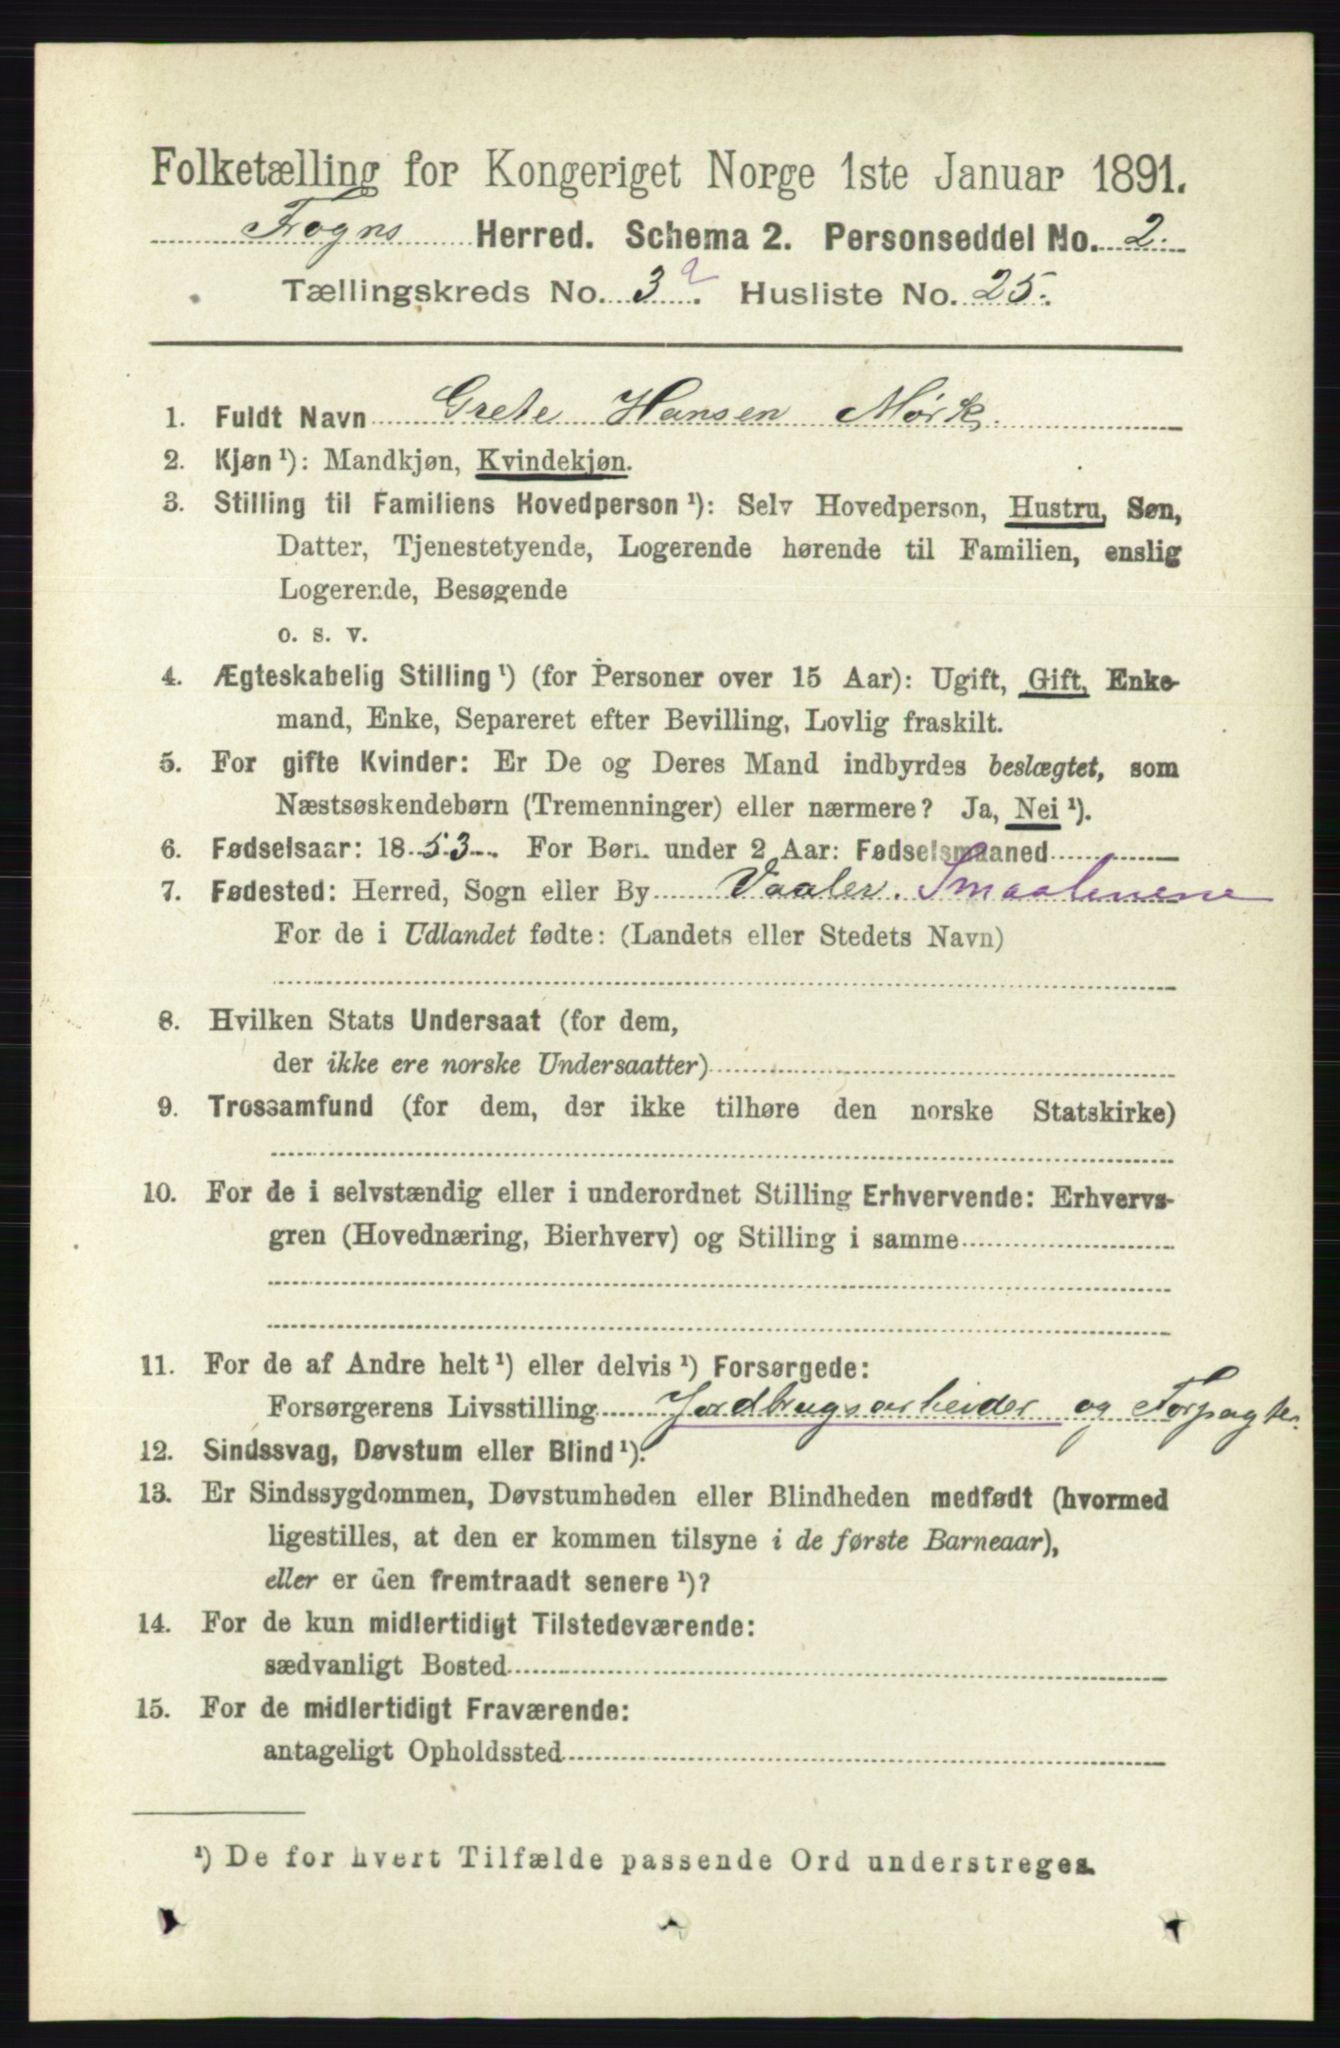 Folketælling for Kongeriget Norge 1ste Januar 1891.
Frogns Herred. Schema 2. Personseddel No. 2.
Tællingskreds No. 3 a. Husliste No. 25.
1. Fuldt Navn Grete Hansen Mørk.
2. Kjøn ¹): Mandkjøn, Kvindekjøn.
3. Stilling til Familiens Hovedperson ¹): Selv Hovedperson, Hustru, Søn,
Datter, Tjenestetyende, Logerende hørende til Familien, enslig
Logerende, Besøgende
o. s. v.
4. Ægteskabelig Stilling ¹) (for Personer over 15 Aar): Ugift, Gift, Enke-
mand, Enke, Separeret efter Bevilling, Lovlig fraskilt.
5. For gifte Kvinder: Er De og Deres Mand indbyrdes beslægtet, som
Næstsøskendebørn (Tremenninger) eller nærmere? Ja, Nei ¹).
6. Fødselsaar: 1853. For Børn under 2 Aar: Fødselsmaaned
7. Fødested: Herred, Sogn eller By Vaaler. Smaalenene
For de i Udlandet fødte: (Landets eller Stedets Navn)
8. Hvilken Stats Undersaat (for dem,
der ikke ere norske Undersaatter)
9. Trossamfund (for dem, der ikke tilhøre den norske Statskirke)
10. For de i selvstændig eller i underordnet Stilling Erhvervende: Erhvervs-
gren (Hovednæring, Bierhverv) og Stilling i samme
11. For de af Andre helt ¹) eller delvis ¹) Forsørgede:
Forsørgerens Livsstilling Jordbrugsarbeider og Forpagter.
12. Sindssvag, Døvstum eller Blind ¹).
13. Er Sindssygdommen, Døvstumheden eller Blindheden medfødt (hvormed
ligestilles, at den er kommen tilsyne i de første Barneaar),
eller er den fremtraadt senere ¹)?
14. For de kun midlertidigt Tilstedeværende:
sædvanligt Bosted
15. For de midlertidigt Fraværende:
antageligt Opholdssted
¹) De for hvert Tilfælde passende Ord understreges.